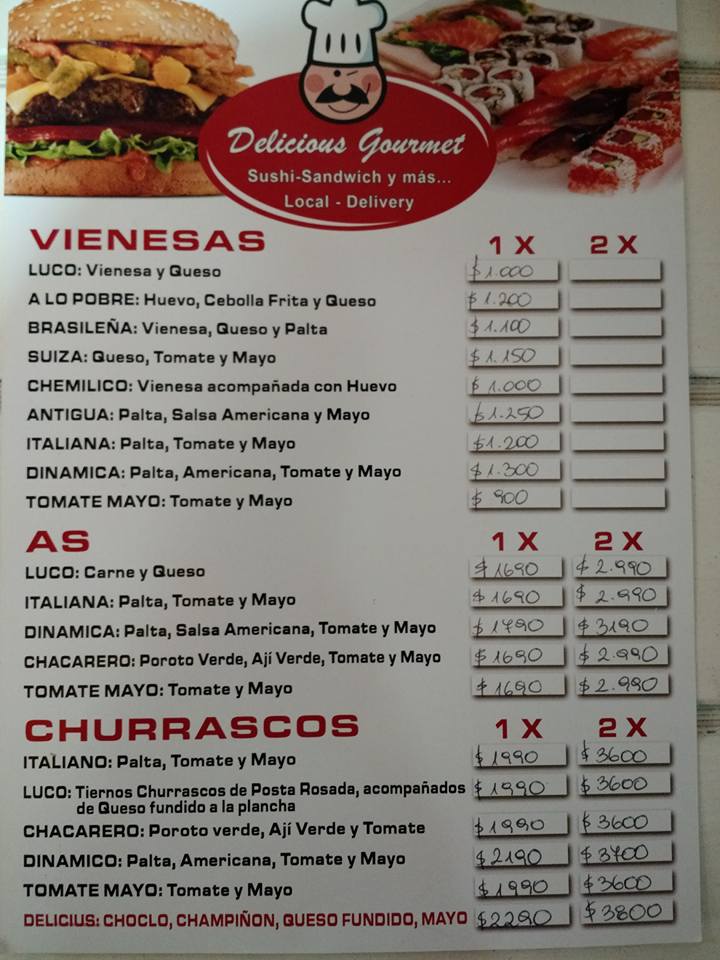 Delicious Gourmet
Sushi-Sandwich y más...
Local - Delivery
VIENESAS 1 X 2 X
LUCO: Vienesa y Queso $1.000
A LO POBRE: Huevo, Cebolla Frita y Queso $1.200
BRASILEÑA: Vienesa, Queso y Palta $1.100
SUIZA: Queso, Tomate y Mayo $1.150
CHEMILICO: Vienesa acompañada con Huevo $1.000
ANTIGUA: Palta, Salsa Americana y Mayo $1.250
ITALIANA: Palta, Tomate y Mayo $1.200
DINAMICA: Palta, Americana, Tomate y Mayo $1.300
TOMATE MAYO: Tomate y Mayo $900
AS 1 X 2 X
LUCO: Carne y Queso $1690 $2.990
ITALIANA: Palta, Tomate y Mayo $1690 $2.990
DINAMICA: Palta, Salsa Americana, Tomate y Mayo $1790 $3190
CHACARERO: Poroto Verde, Ají Verde, Tomate y Mayo $1690 $2.990
TOMATE MAYO: Tomate y Mayo $1690 $2.990
CHURRASCOS 1 X 2 X
ITALIANO: Palta, Tomate y Mayo $1990 $3600
LUCO: Tiernos Churrascos de Posta Rosada, acompañados $1990 $3600
de Queso fundido a la plancha
CHACARERO: Poroto verde, Ají Verde y Tomate $1990 $3600
DINAMICO: Palta, Americana, Tomate y Mayo $2190 $3700
TOMATE MAYO: Tomate y Mayo $1990 $3600
DELICIUS: CHOCLO, CHAMPIÑON, QUESO FUNDIDO, MAYO $2290 $3800